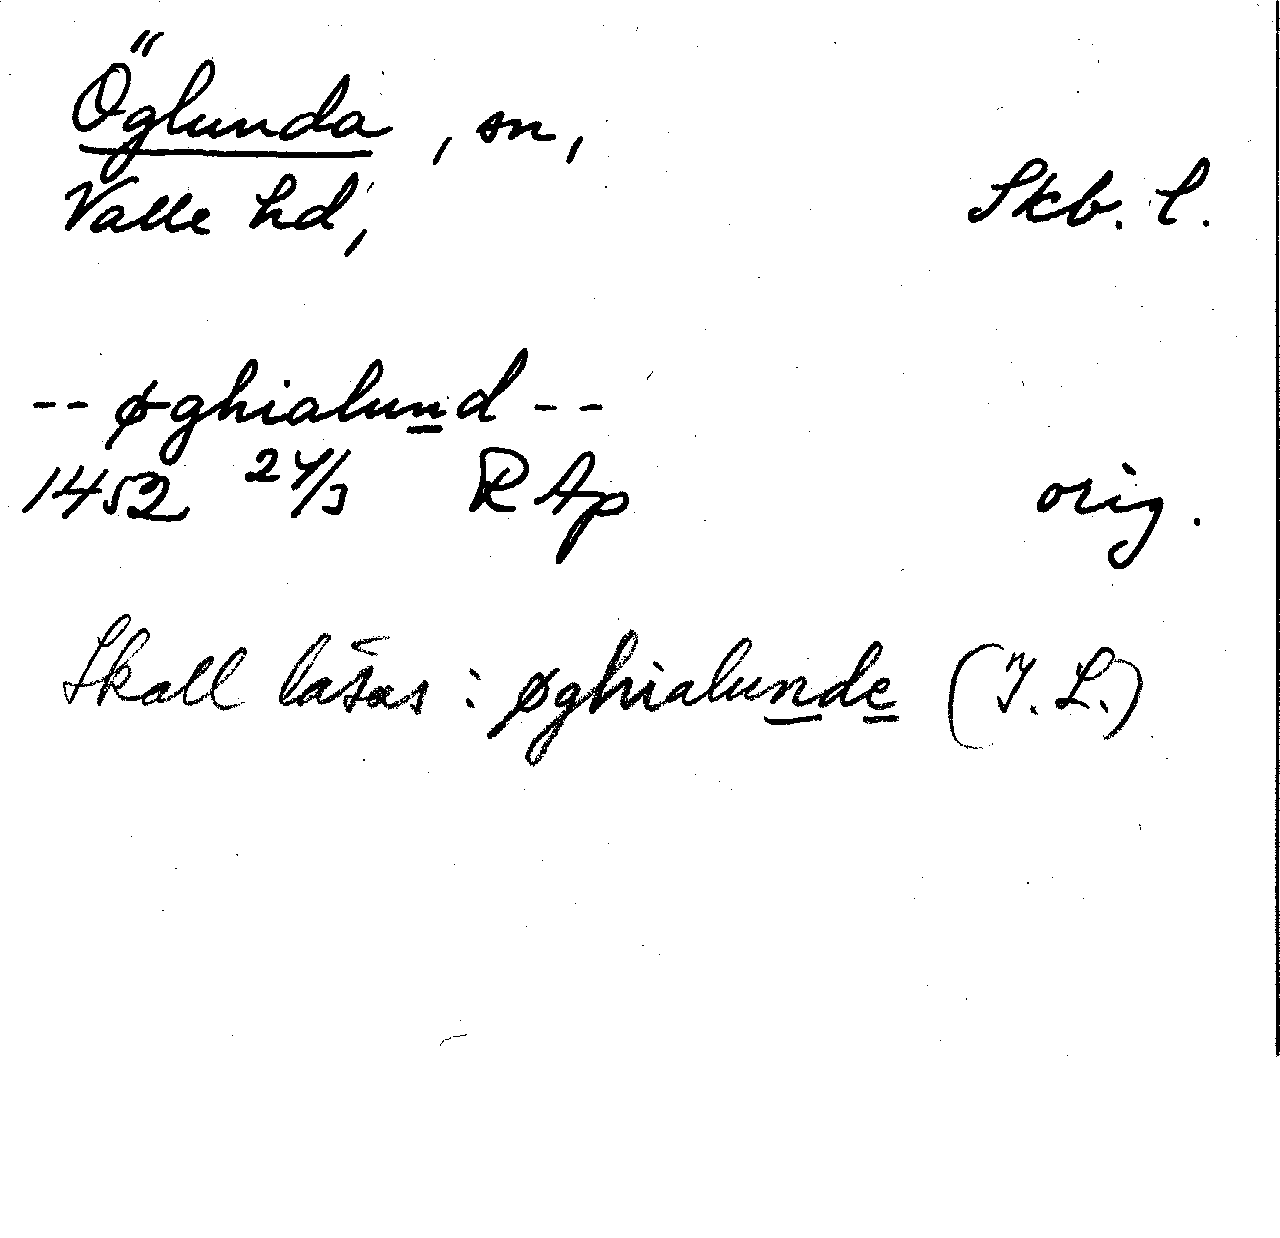 Öglunda, sn,
Valle hd, Skb. l.
-- øghialund --
1452 24/3 RAp orig.
Skall läsas: øghialunde (I. L.)